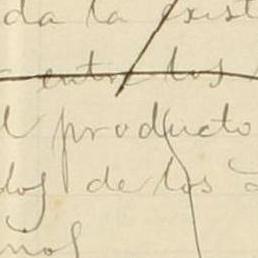 da la exist
entre los
l producto
dos de los
ños